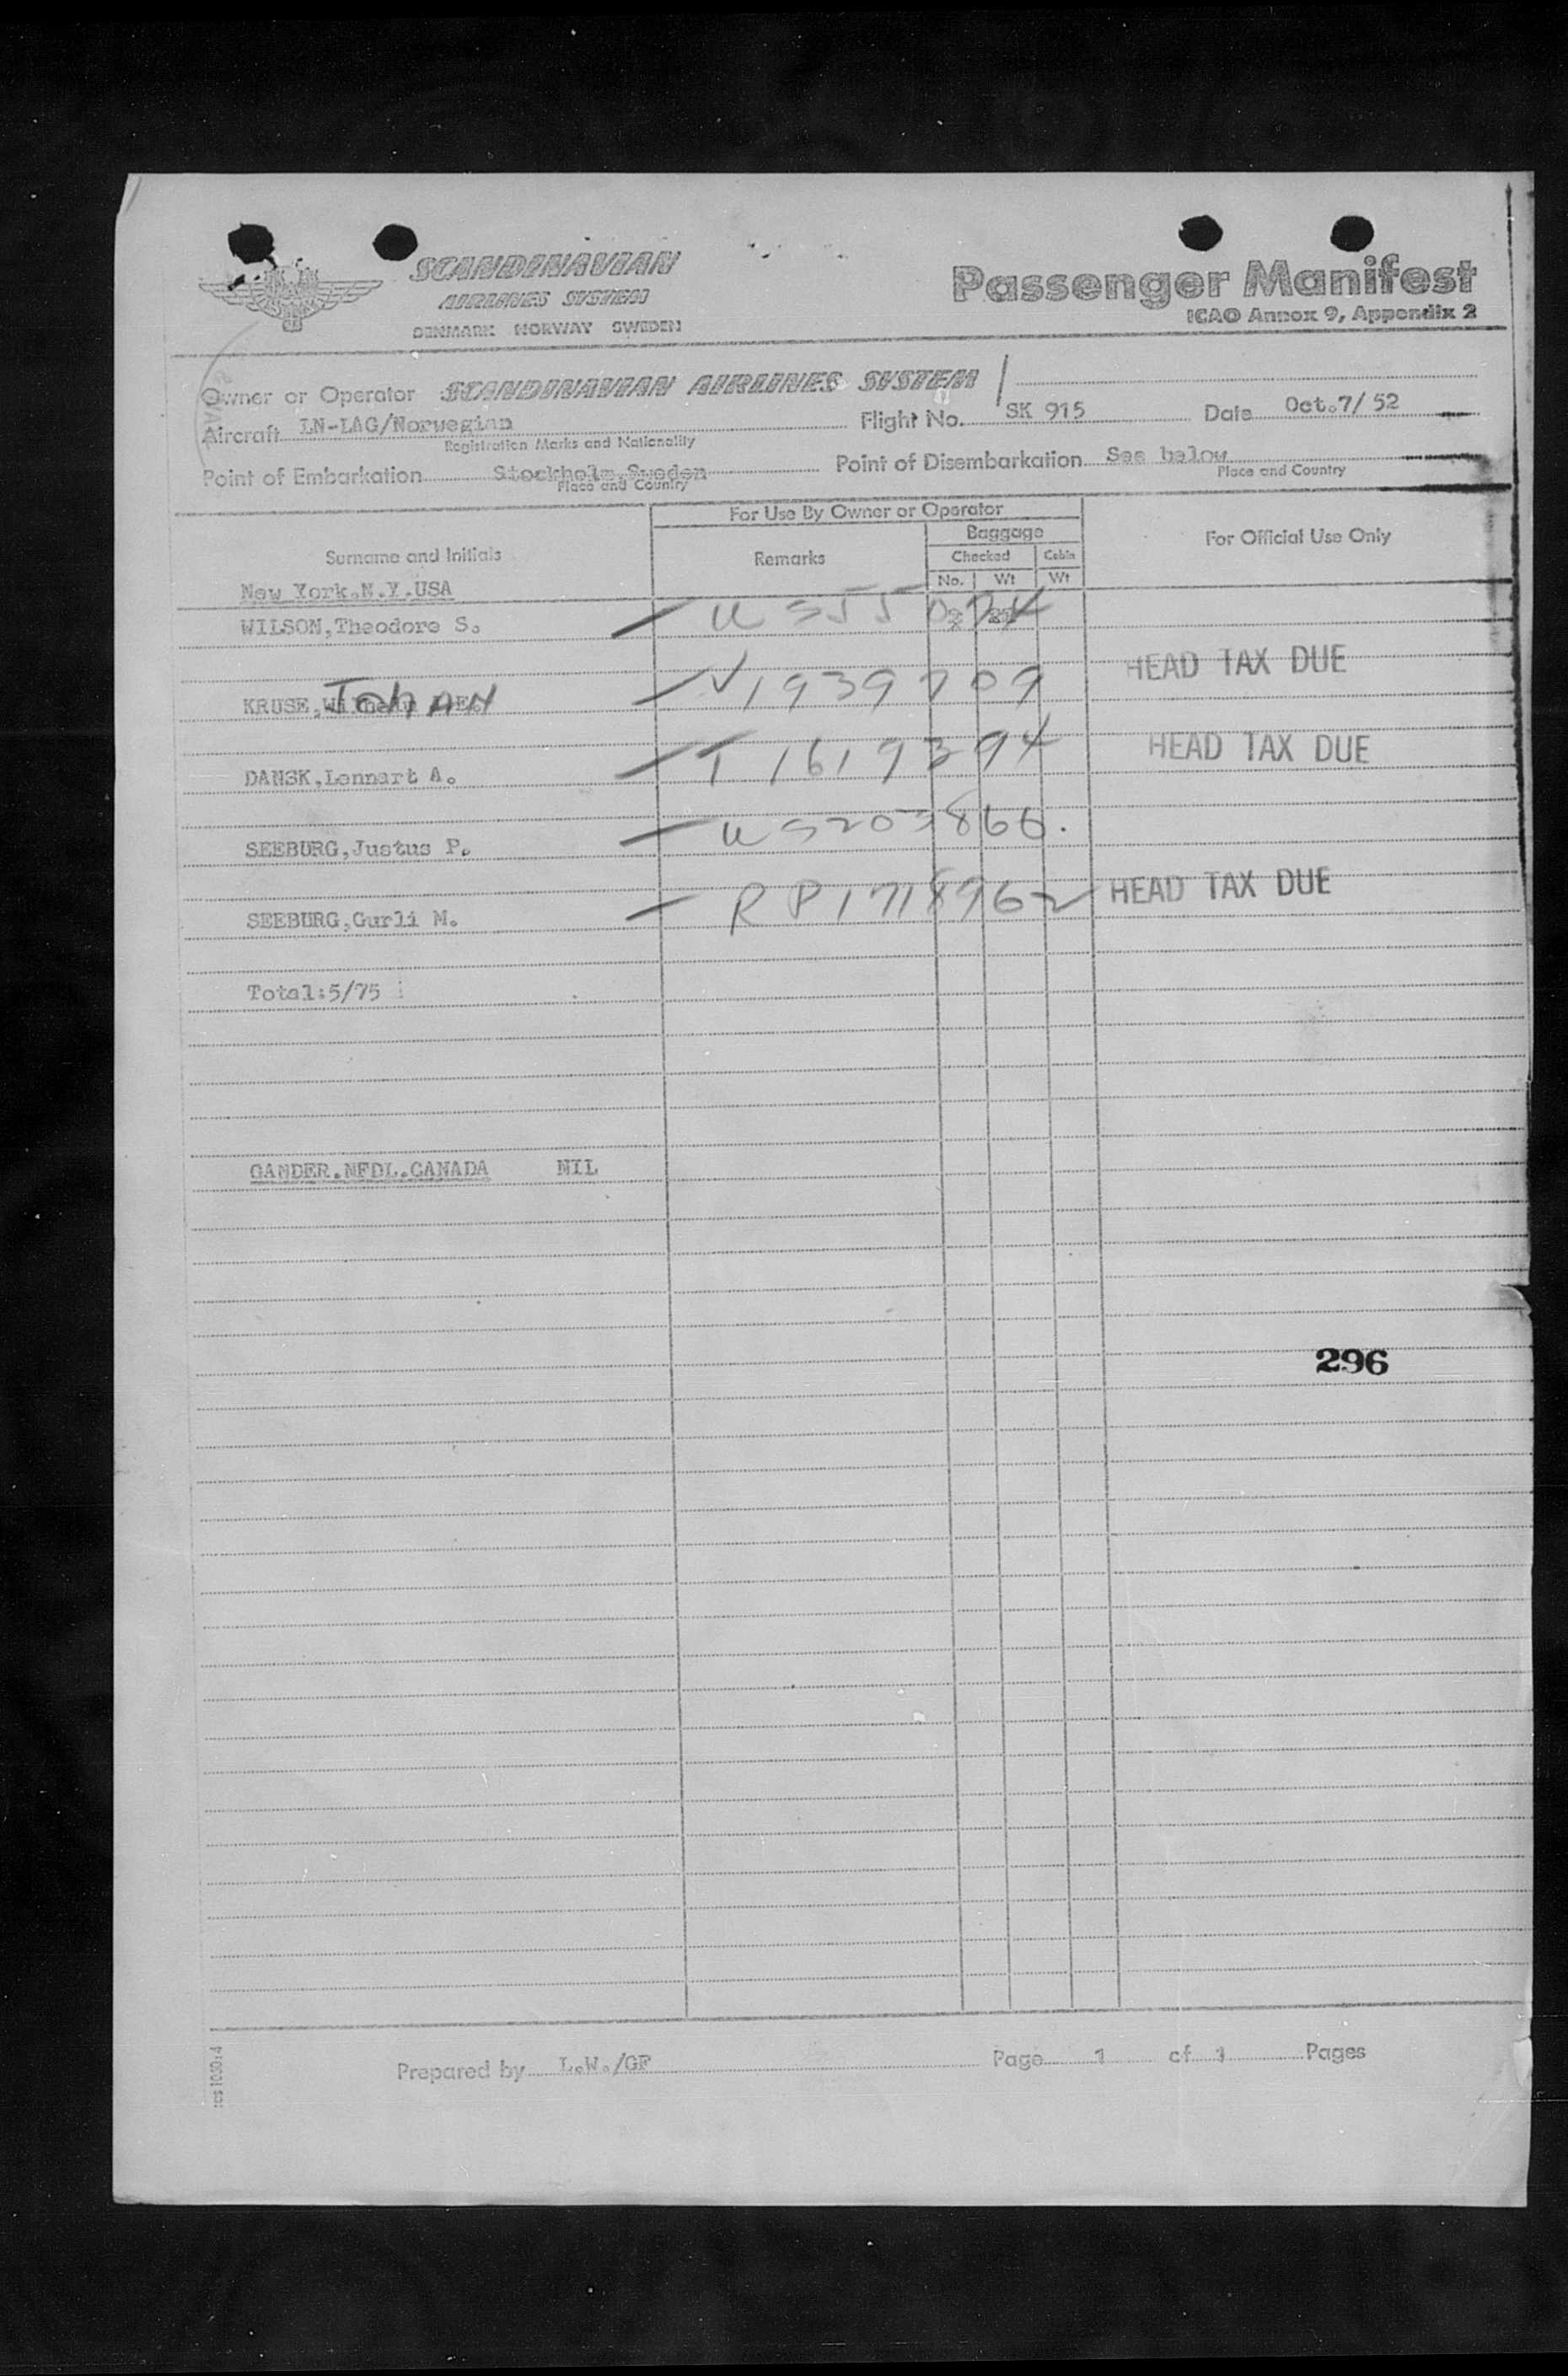 SCANDINAVIAN
AIRLINES SYSTEM
DENMARK NORWAY SWEDEN
Passenger Manifest
ICAO Annex 9, Appendix 2
Owner or Operator SCANDINAVIAN AIRLINES SYSTEM
Aircraft LN-LAG/Norwegian Flight No. SK 915 Date Oct.7/ 52
Registration Marks and Nationality
Point of Embarkation Stockholm,Sweden Point of Disembarkation See below
Place and Country Place and Country
For Use By Owner or Operator
Surname and Initials Remarks Baggage For Official Use Only
Checked Cabin
No. Wt Wt
New York.N.Y.USA
WILSON,Theodore S.
HEAD TAX DUE
KRUSE, JOHAN V1939709
HEAD TAX DUE
DANSK,Lennart A. T 1619394
SEEBURG,Justus P.
HEAD TAX DUE
SEEBURG,Gurli M. RP1718962
Total:5/75
GANDER.NFDL.CANADA NIL
296
Prepared by L.W./GF Page 1 of 1 Pages